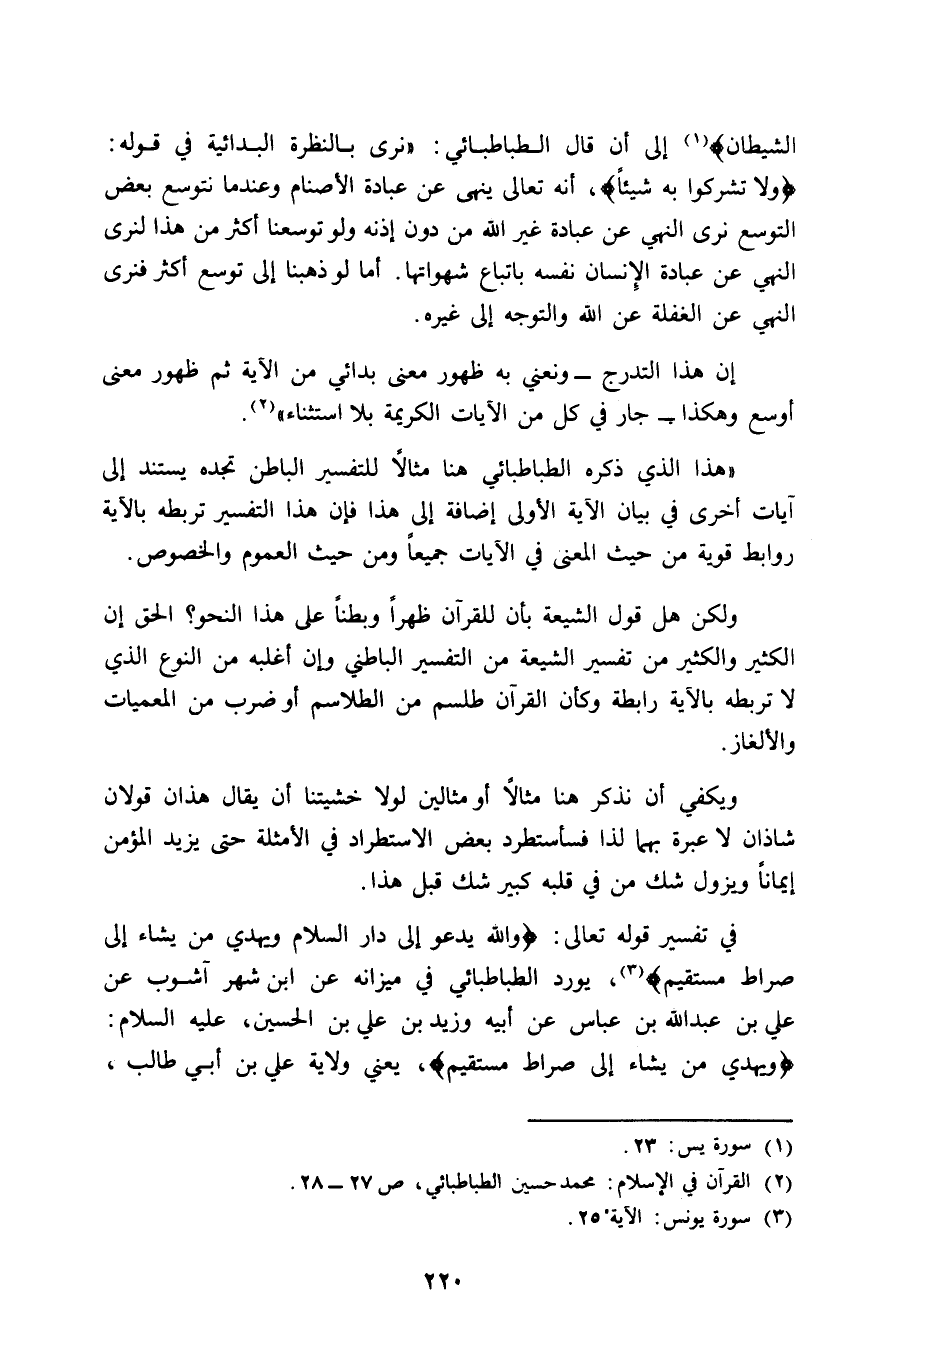 الشيطان﴾(١) إلى أن قال الطباطبائي: «نرى بالنظرة البدائية في قوله:
﴿ولا تشركوا به شيئاً﴾، أنه تعالى ينهى عن عبادة الأصنام وعندما نتوسع بعض
التوسع نرى النهي عن عبادة غير الله من دون إذنه ولو توسعنا أكثر من هذا لنرى
النهي عن عبادة الإنسان نفسه باتباع شهواتها. أما لو ذهبنا إلى توسع أكثر فنرى
النهي عن الغفلة عن الله والتوجه إلى غيره.
إن هذا التدرج ـ ونعني به ظهور معنى بدائي من الآية ثم ظهور معنى
أوسع وهكذا ـ جار في كل من الآيات الكريمة بلا استثناء»(٢).
«هذا الذي ذكره الطباطبائي هنا مثالاً للتفسير الباطن تجده يستند إلى
آيات أخرى في بيان الآية الأولى إضافة إلى هذا فإن هذا التفسير تربطه بالآية
روابط قوية من حيث المعنى في الآيات جميعاً ومن حيث العموم والخصوص.
ولكن هل قول الشيعة بأن للقرآن ظهراً وبطناً على هذا النحو؟ الحق إن
الكثير والكثير من تفسير الشيعة من التفسير الباطني وإن أغلبه من النوع الذي
لا تربطه بالآية رابطة وكأن القرآن طلسم من الطلاسم أو ضرب من المعميات
والألغاز.
ويكفي أن نذكر هنا مثالاً أو مثالين لولا خشيتنا أن يقال هذان قولان
شاذان لا عبرة بهما لذا فسأستطرد بعض الاستطراد في الأمثلة حتى يزيد المؤمن
إيماناً ويزول شك من في قلبه كبير شك قبل هذا.
في تفسير قوله تعالى: ﴿والله يدعو إلى دار السلام ويهدي من يشاء إلى
صراط مستقيم﴾(٣)، يورد الطباطبائي في ميزانه عن ابن شهر آشوب عن
علي بن عبدالله بن عباس عن أبيه وزيد بن علي بن الحسين، عليه السلام:
﴿ويهدي من يشاء إلى صراط مستقيم﴾، يعني ولاية علي بن أبي طالب ،
(١) سورة يس: ٢٣.
(٢) القرآن في الإسلام: محمد حسين الطباطبائي، ص ٢٧ ـ ٢٨.
(٣) سورة يونس: الآية ٢٥.
٢٢٠